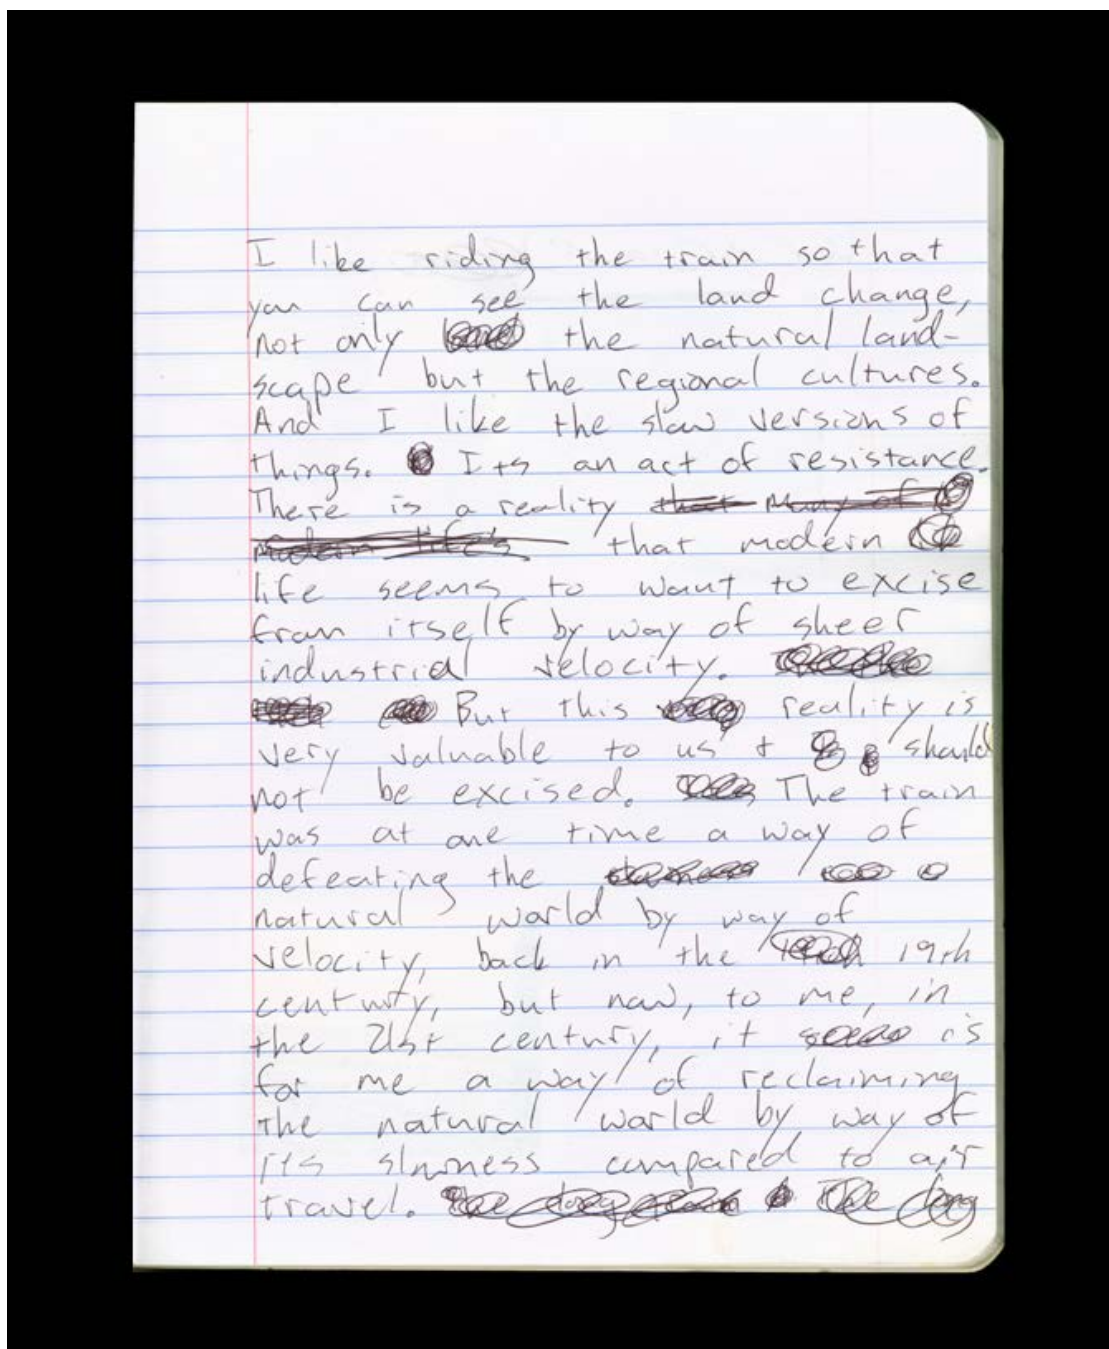 I like riding the train so that
you can see the land change,
not only the natural land-
scape but the regional cultures.
And I like the slow versions of
things. Its an act of resistance.
There is a reality that many of
modern life's that modern
life seems to want to excise
from itself by way of sheer
industrial velocity.
But this reality is
very valuable to us + should
not be excised. The train
was at one time a way of
defeating the
natural world by way of
velocity, back in the 19th
century, but now, to me, in
the 21st century, it is
for me a way of reclaiming
the natural world by way of
its slowness compared to air
travel.